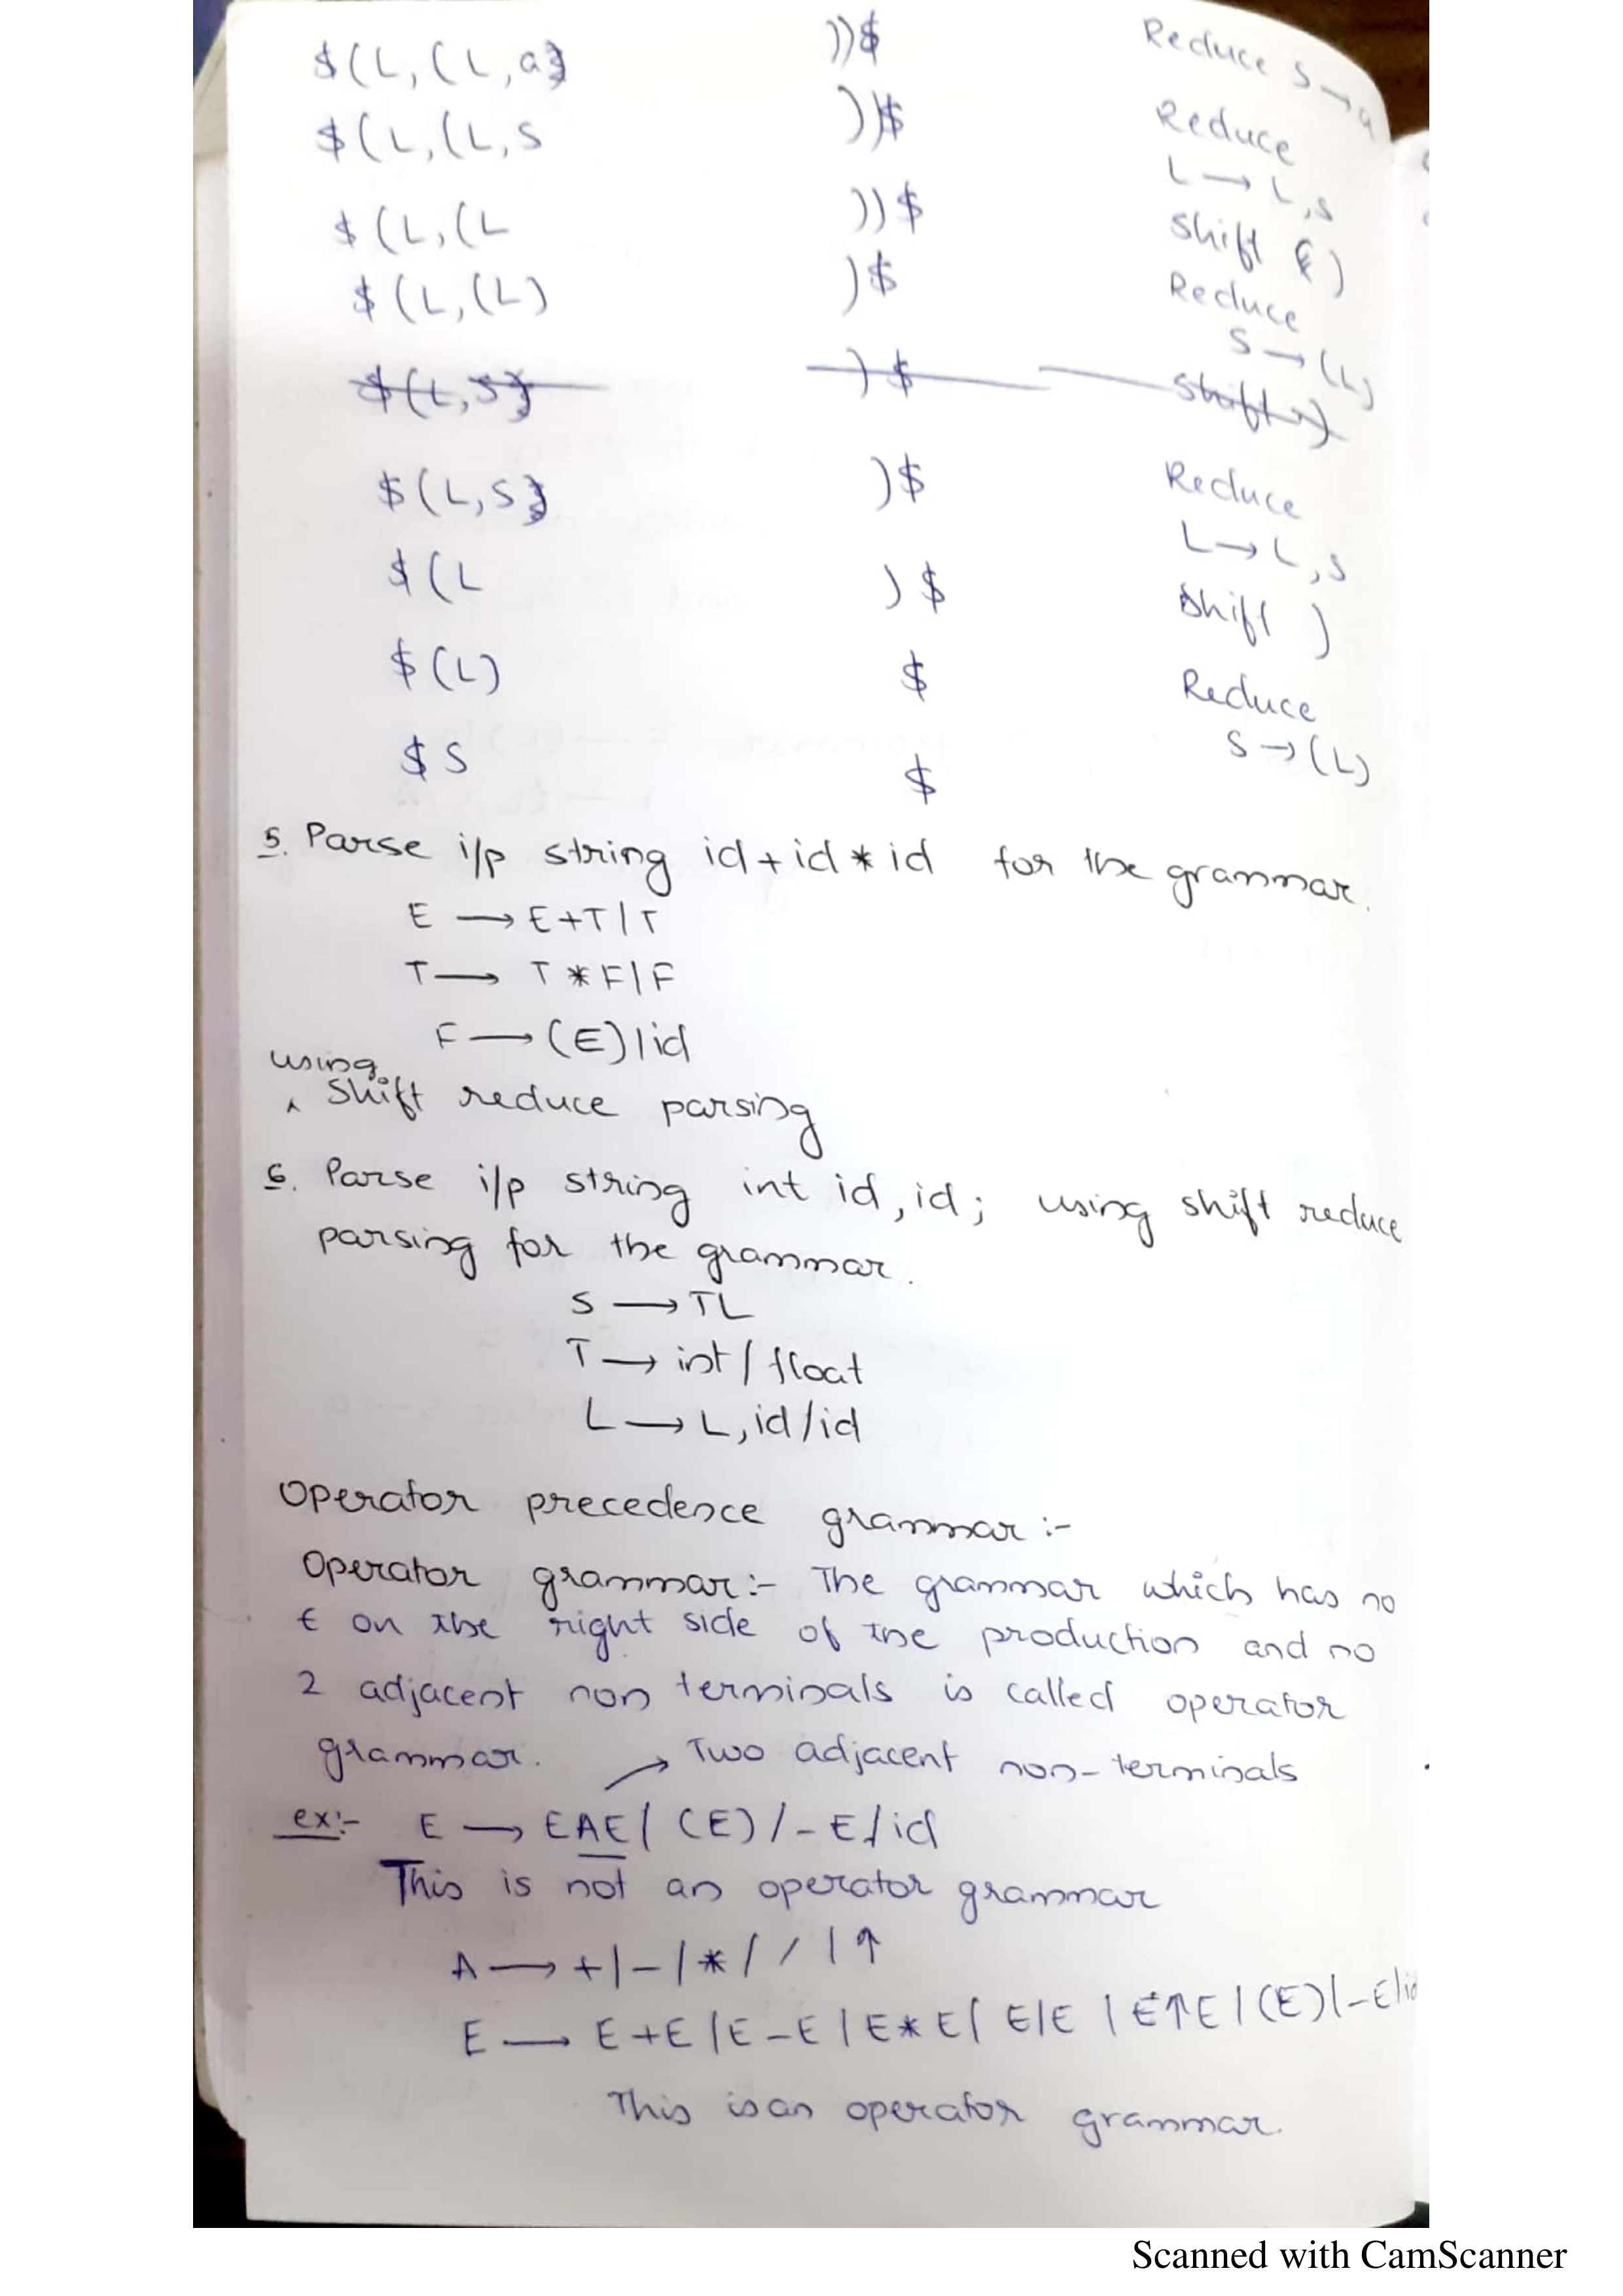 $(L,(L,a ))$ Reduce S→a
$(L,(L,S ))$ Reduce
L→L,S
$(L,(L ))$ Shift )
$(L,(L) )$ Reduce
S→(L)
$(L,S )$ Shift )
$(L,S )$ Reduce
L→L,S
$(L )$ Shift )
$(L) $ Reduce
S→(L)
$S $
5. Parse i/p string id+id*id for the grammar.
E → E+T|T
T → T*F|F
F → (E)|id
using
^ Shift reduce parsing
6. Parse i/p string int id,id; using shift reduce
parsing for the grammar.
S → TL
T → int/float
L → L,id/id
Operator precedence grammar:-
Operator grammar:- The grammar which has no
ϵ on the right side of the production and no
2 adjacent non terminals is called operator
grammar. → Two adjacent non-terminals
ex:- E → EAE| (E)/-E/id
This is not an operator grammar
A → +|-|*/ / |↑
E → E+E|E-E|E*E|E/E|E↑E|(E)|-E|id
This is an operator grammar.
Scanned with CamScanner